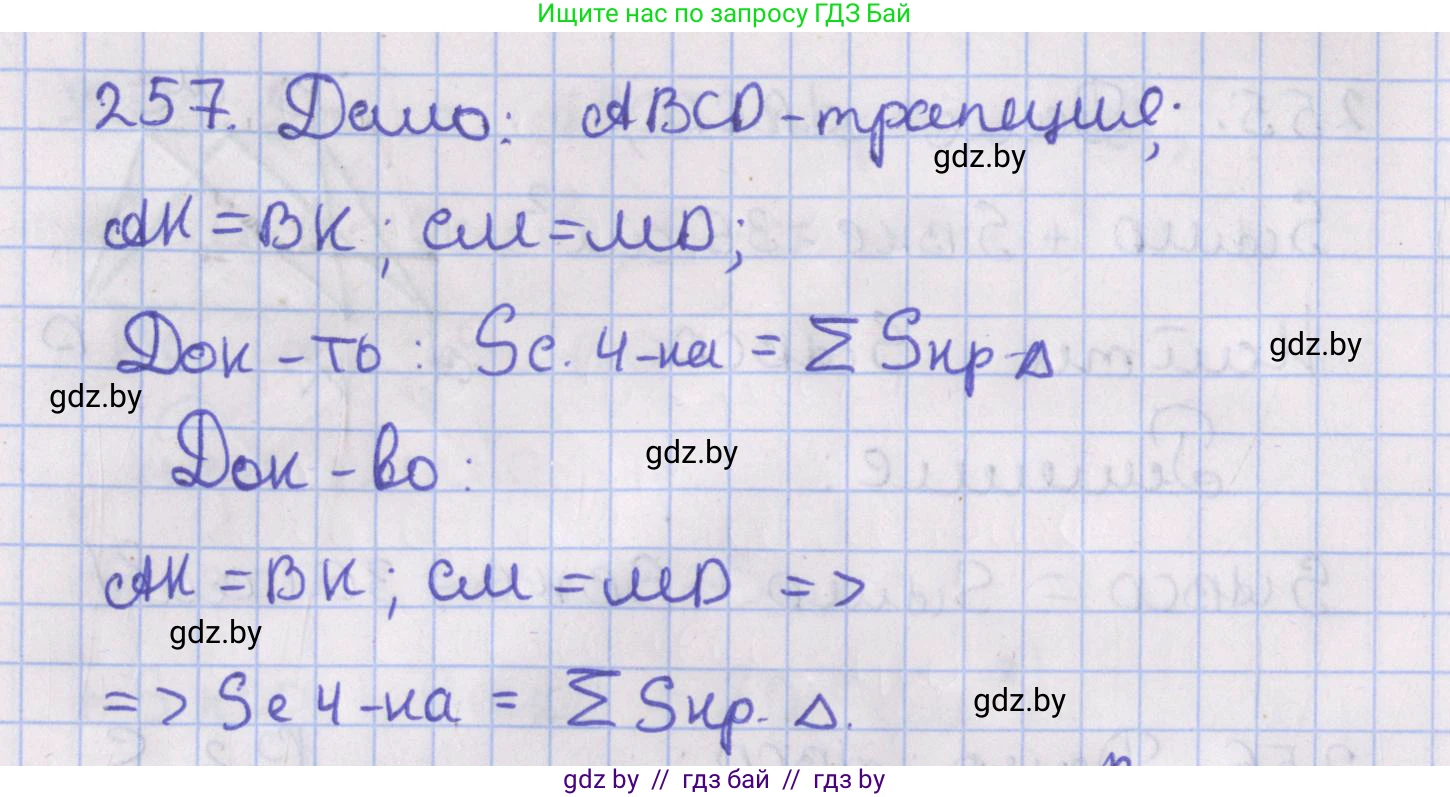 Ищите нас по запросу ГДЗ Бай
257. Дано: ABCD - трапеция;
gdz.by
AK = BK; CM = MD;
Док - ть: Sс. 4-ка = Σ Sкр Δ
gdz.by
gdz.by
Док - во:
gdz.by
AK = BK; CM = MD =>
gdz.by
=> Sс 4-ка = Σ Sкр. Δ.
gdz.by
gdz by // гдз бай // гдз by